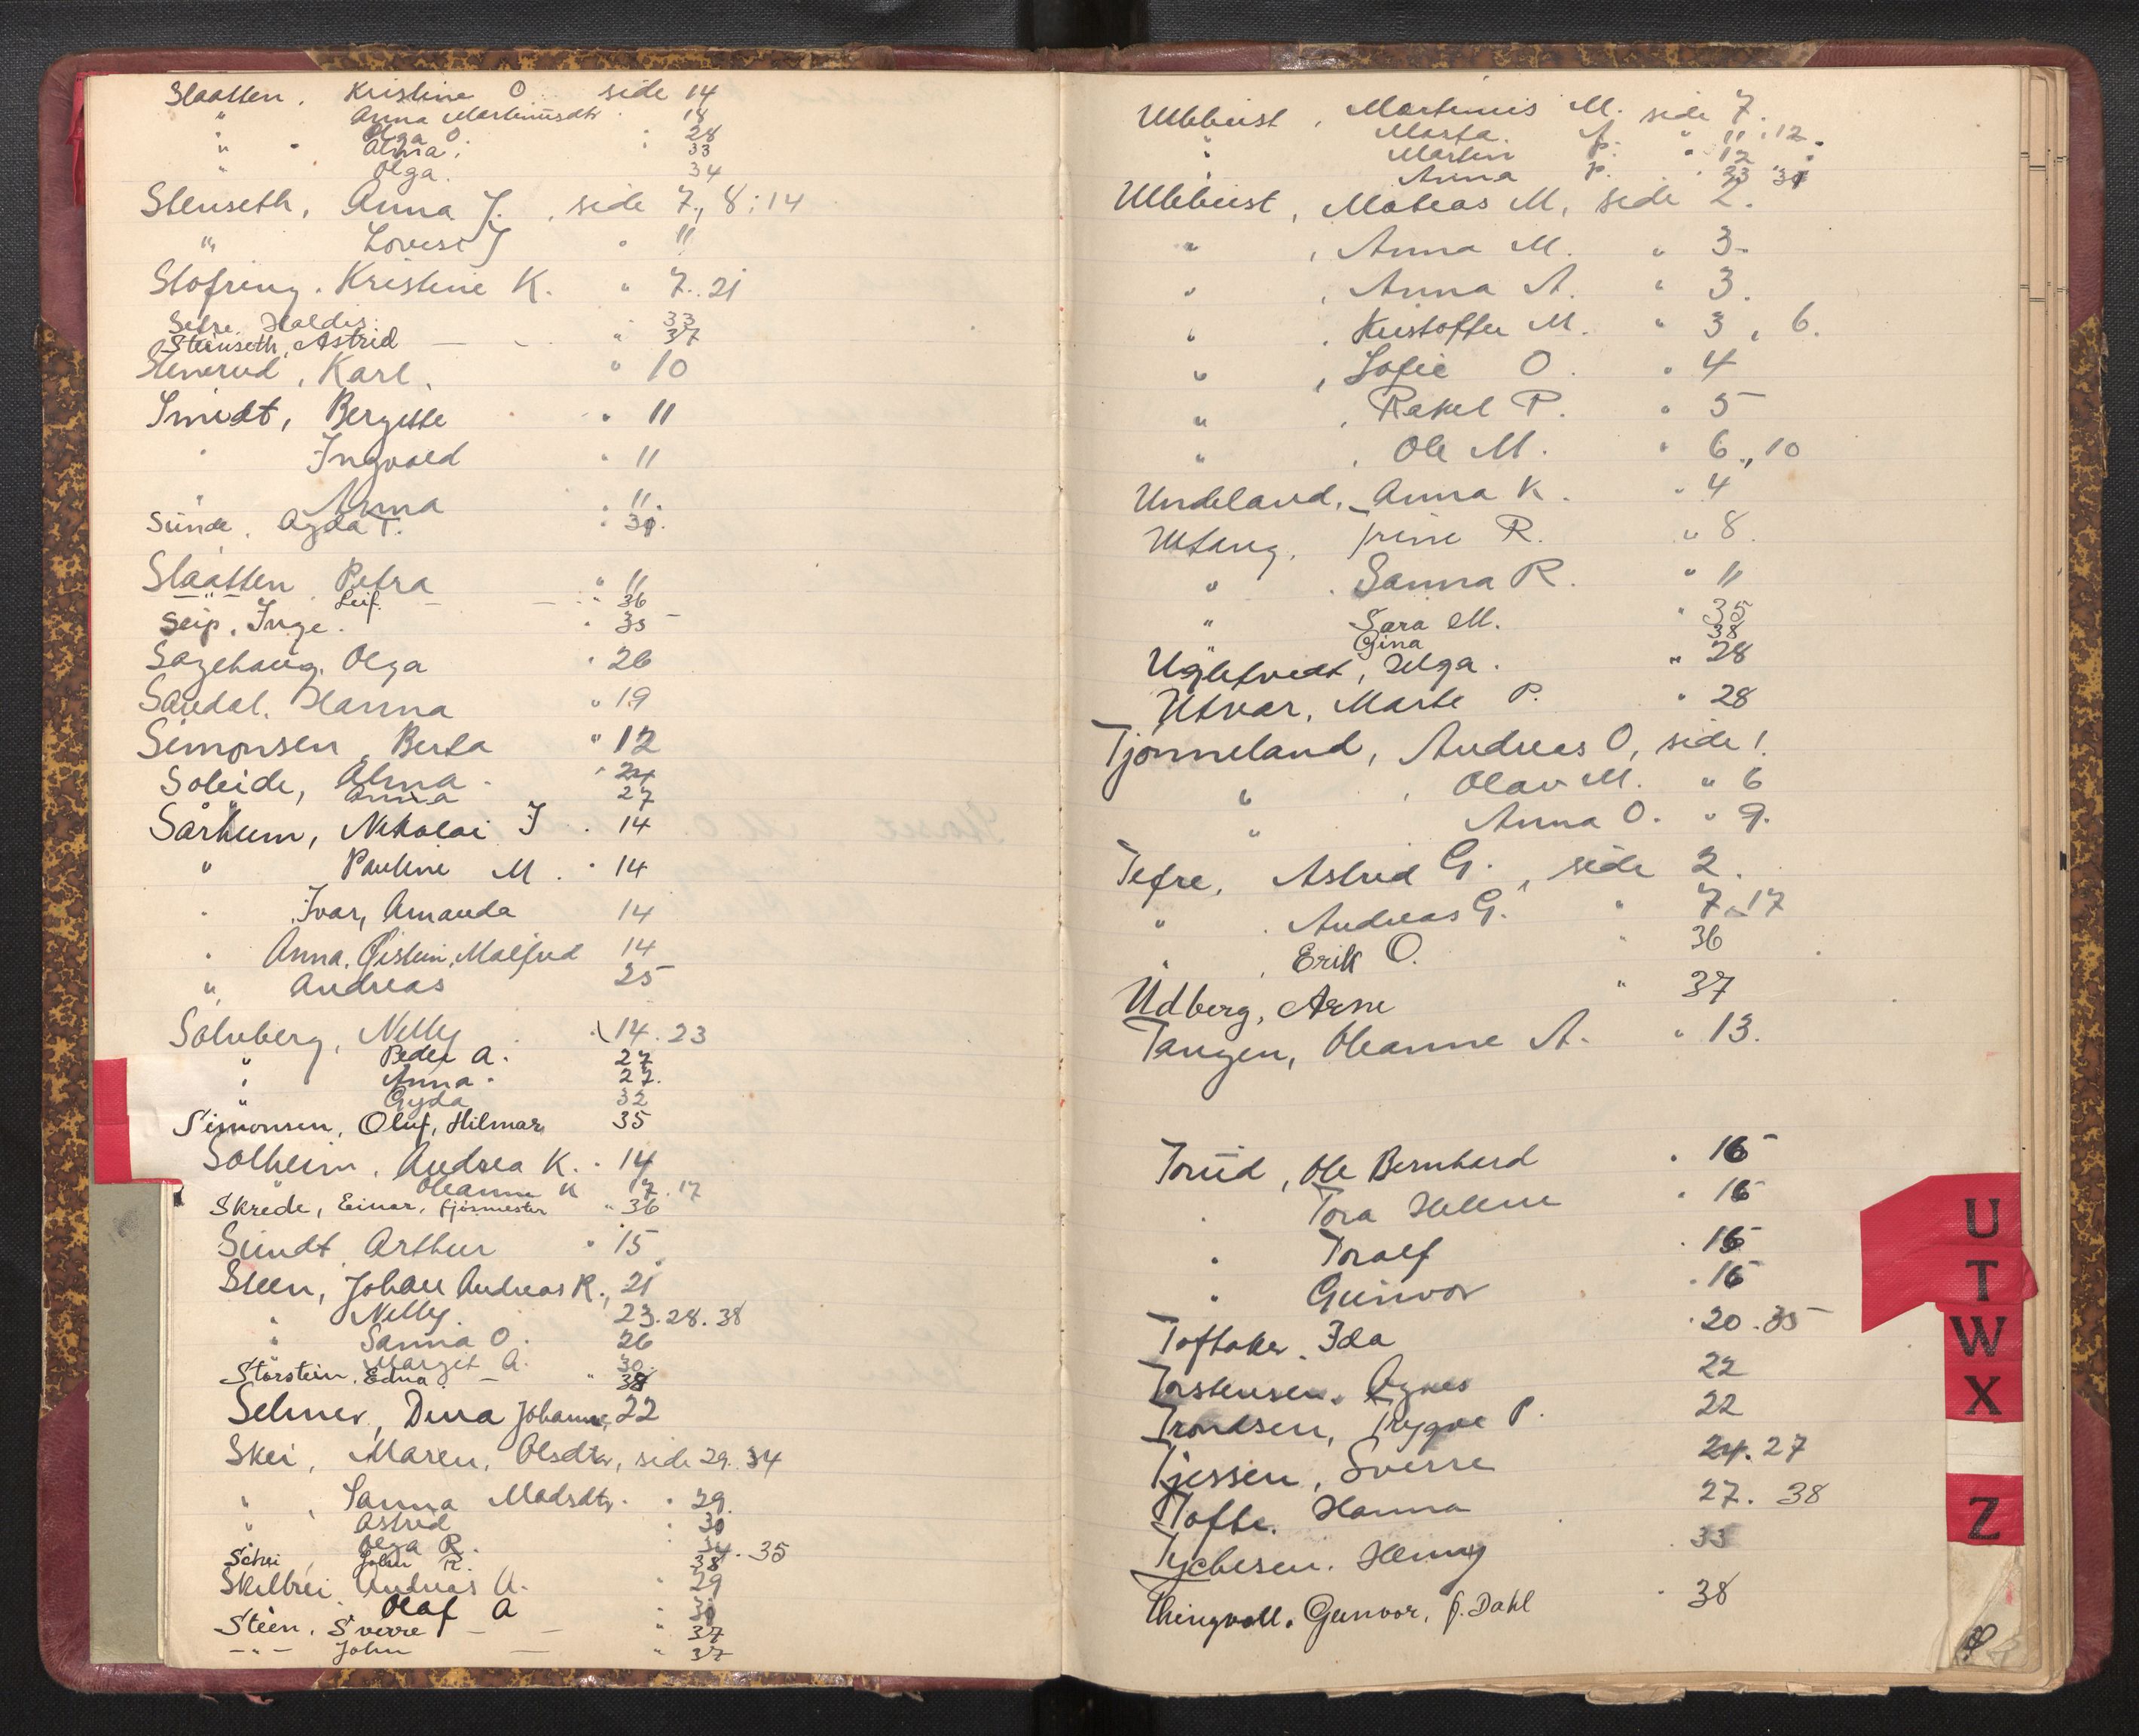 Slaatten, Kristine O. side 14
" Anna Martinusdtr. 18
" Olga O. " 28
" Alma. " 33
" Olga. 34
Stenseth, Anna J., side 7., 8; 14
" Lovise J " 11
Stofring. Kristine K. " 7. 21
Setre. Haldis. 33
Steinseth, Astrid — - " 37
Stenerud, Karl, " 10
Smidt, Bergitte " 11
Ingvald " 11
" Anna " 11.
Sunde, Agda T. " 30.
Slaatten, Petra " 11
" Leif. — — " 36
Seip, Inge. " 35
Sagehaug, Olga " 26
Sandal, Hanna " 19
Simonsen, Berta " 12
Soleide, Alma. " 24
" Anna 27
Sårheim, Nikolai J. 14
" Pauline M. " 14
Ivar, Amanda 14
" Anna, Øistein, Malfrid 14
" Andreas 25
Solvberg, Nelly 14. 23
" Peder A. 27
" Anna. 27.
" Gyda 32
Simonsen, Oluf, Hilmar 35
Solheim, Andrea K. " 14
" Oleanne K 17. 17
Skrede, Einar, fjøsmester " 36
Sundt, Arthur " 15
Steen, Johan Andreas R., 21
" Nelly. 23. 28. 38
" Sanna O. 26
" Marget A. 30.
Storstein, Edna. — " 38
Selmer, Dina Johanne, 22
Skei, Maren, Olsdtr, side 29. 34
" Sanna Madsdtr. " 29.
" Astrid " 30
" Olga R. 34. 35
Schei, John R. 38
Skilbrei Andreas A. " 29
Olaf A " 30
Steen, Sverre — — " 37
— " — John — " 37
Ullebust, Martinus M. side 7.
" Marta. " 11; 12.
" Martin P. " 12
" Anna P. " 33 31
Ullebust, Mateas M, side 2.
" , Anna M. " 3.
" , Anna A. " 3.
" , Kristoffer M. " 3, 6.
" , Sofie O. " 4
" , Rakel P. " 5
" , Ole M. " 6., 10
Undeland, Anna K. " 4
Utaug, Trine R. " 8.
" Sanna R. " 11
" Sara M. " 35
Gina 38
Ugletvedt, Helga. " 28
Utvær, Marte P. " 28
Tjønneland, Andreas O, side 1.
" , Olav M. " 6
" Anna O. " 9.
Tefre, Astrid G., side 2.
" . Andreas G. " 7. 17
" , Erik O. " 36
Udberg, Arne " 37
Tangen, Oleanne A. " 13.
Torud, Ole Bernhard " 16
" Tora Helene " 16
" Toralf " 16
" Gunvor " 16
Toftaker, Ida " 20. 35
Torstensen, Agnes 22
Trondsen, Trygve P. 22
Tjessen, Sverre 24. 27
Tofte. Hanna 27. 38
Tychesen. Henny 33
Thingvoll, Gunvor, f. Dahl " 38
U
T
W
X
Z